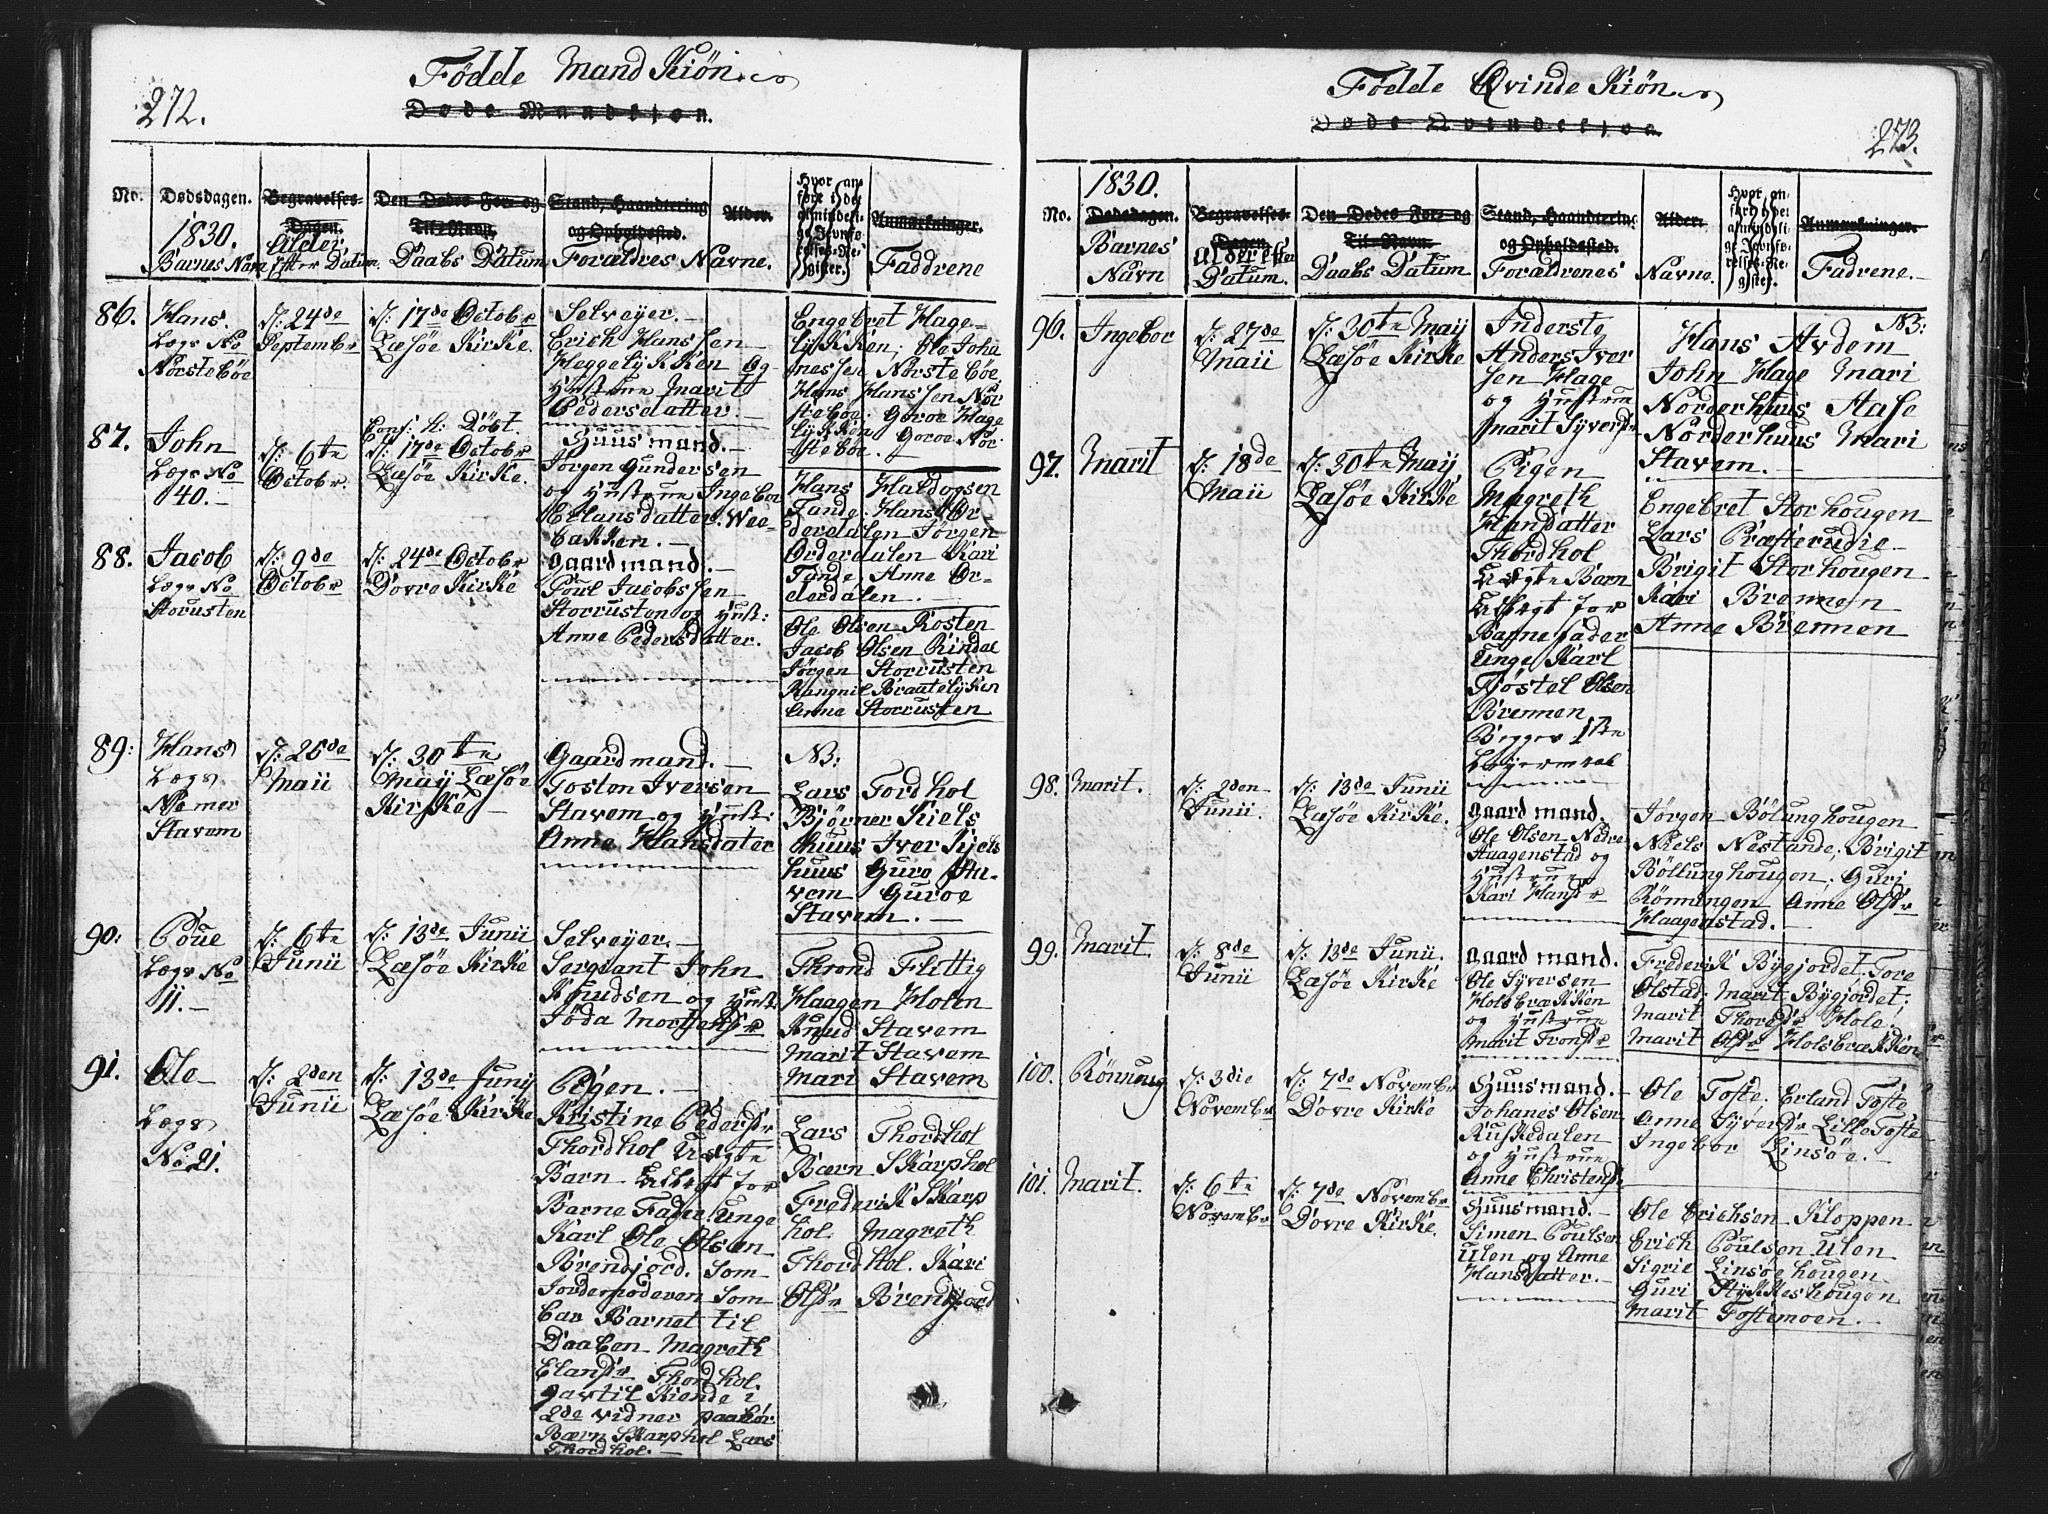 272.
Födde Mand Kiön.
Døde Mandkjøn.
No.
Dødsdagen.
1830.
Barnes Navn
Begravelses-
Dagen.
Alder
efter Datum.
Den Dødes For- og
Til-Navn.
Daabs Datum
Stand, Haandtering
og Opholdsted.
Forældres Navne.
Alder.
Hvor an-
føre i det
almindeli-
ge Jevnfø-
relses-Re-
gister.
Anmærkninger.
Faddrene
86.
Hans.
Lægs No
Nörsteböe
d: 24de
Septembr
d: 17de Octobr
Læsöe Kirke.
Selveyer.
Erich Hanssen
Heggelykken og
Hustrue Marit
Pedersdatter.
Engebret Hage-
lykken; Ole Joha
nessen Norstebòe
Hans Hanssen Nör
steboe. Goroe Hage
lykken Goroe Nor
steboe.
87.
John
Lægs No
40.
d: 6te
Octobr.
Conf: H: Döbt.
d: 17de Octobr
Læsöe Kirke.
Huusmand.
Jorgen Gundersen
og Hustrue Ingebor
Erlansdatter. Wee-
bakken.
Hans Haldogsen
Tande. Hans Or
derdalen Jörgen
Orderdalen Kari
Tande, Anne Or-
derdalen.
88.
Jacob
Lægs No
Storusten
d: 9de
Octobr
d: 24de Octobr
Dovre Kirke
Gaardmand.
Poul Jacobssen
Storrusten og Hust:
Anne Pedersdatter.
Ole Olsen Rosten
Jacob Olsen Rindal
Jörgen Storrusten
Rangnil Braatelyken
Anne Storrusten
89:
Hans
Lægs
No mer
Stavem
d: 25de
Maii
d: 30te
May Læsöe
Kirke
Gaardmand.
Tosten Iversen
Stavem og Hust:
Anne Hansdater
NB:
Lars Tordhol
Björner Kiels
huus Iver Kjels
huus Guro Sta-
vem Guroe
Stavem.
90:
Poue
Lægs No
11.
d: 6te
Junii
d: 13de Junii
Læsöe Kirke
Selveyer.
Sergiant John
Knudsen og Hust.
Jöda Mortensdr
Thrond Flittig
Haagen Holen
Knud Stavem
Marit Stavem
Mari Stavem
91.
Ole
Lægs
No: 21.
d: 2den
Junii
d: 13de Juny
Læsöe Kirke
Pigen.
Kristine Pedersdr
Thordhol Uægte
Barn Udlægt for
Barne Fader Unge
Karl Ole Olsen
Brendjord. Som
Jordemoderen Som
bar Barnet til
Daaben Magreth
Elansdr Thordhol.
gav til Kiende i
2de vidner paahör
Bæern Skarphol Lars
Thordhol.
Lars Thordhol
Bæern Skarphol
Frederik Skarp
hol. Magreth
Thordhol. Kari
Olsdr Brendjord
273.
Födde Qvinde Kiön
Døde Qvindekjøn.
No.
1830.
Dødsdagen.
Barnes
Navn
Begravelses-
Dagen.
Alder efter
Datum.
Den Dødes For- og
Til-Navn.
Daabs Datum
Stand, Haandtering
og Opholdsted.
Forældrenes
Alder.
Navne.
Hvor an-
ført i det
almindeli-
ge Jevnfø-
relses-Re-
gister.
Anmærkninger.
Fadrene.
96.
Ingebor
d: 27de
Maii
d: 30te May
Læsöe Kirke
Inderste
Anders Iver
sen Hage
og Hustrue
Marit Syversdr
NB:
Hans Avdem
John Hage Mari
Norderhuus Aase
Norderhuus Mari
Stavem.
97.
Marit
d: 18de
Maii
d: 30te May
Læsöe Kirke
Pigen
Magreth
Hansdatter
Thordhol
Uægte Barn
Udlægt for
Barnefader
Unge Karl
Tjöstel Olsen
Brennen
Begges 1ste
Leyermaal
Engebret Storhougen
Lars Præsterudie
Brigit Storhougen
Kari Brennen
Anne Brennen
98.
Marit.
d: 2den
Junii.
d: 13de Junii
Læsöe Kirke.
Gaardmand.
Ole Olsen Nedre
Haagenstad og
Hustrue
Kari Hansdr
Jörgen Bölunghougen
Niels Nestande; Brigit
Böllunghougen. Guri
Rönningen Anne Olsdr
Haagenstad.
99.
Marit.
d: 8de
Junii
d: 13de Junii.
Læsöe Kirke
Gaardmand.
Ole Syversen
Holsbrækken
og Hustrue
Marit Tronsdr
Frederik Bygjordet. Tore
Olstad. Marit Bygjordet;
Marit Thoresdr Hole;
Marit Olsdr Holsbrækken
100.
Rönnug
d: 3die
Novembr
d: 7de Novembr
Dovre Kirke
Huusmand.
Johanes Olsen
Ruskedalen
og Hustrue
Anne Christensdr
Ole Tofte. Erland Tofte
Anne Syversdr Lille Tofte
Ingebor Linsöe.
101.
Marit.
d: 6te
Novembr
d: 7de Novembr
Dovre Kirke.
Huusmand.
Simen Poulsen
Ulen og Anne
Hansdatter.
Ole Erichsen Kloppen
Erich Poulsen Ulen
Sigrie Linsöehougen
Guri Stykkeshougen
Marit Toftemoen.